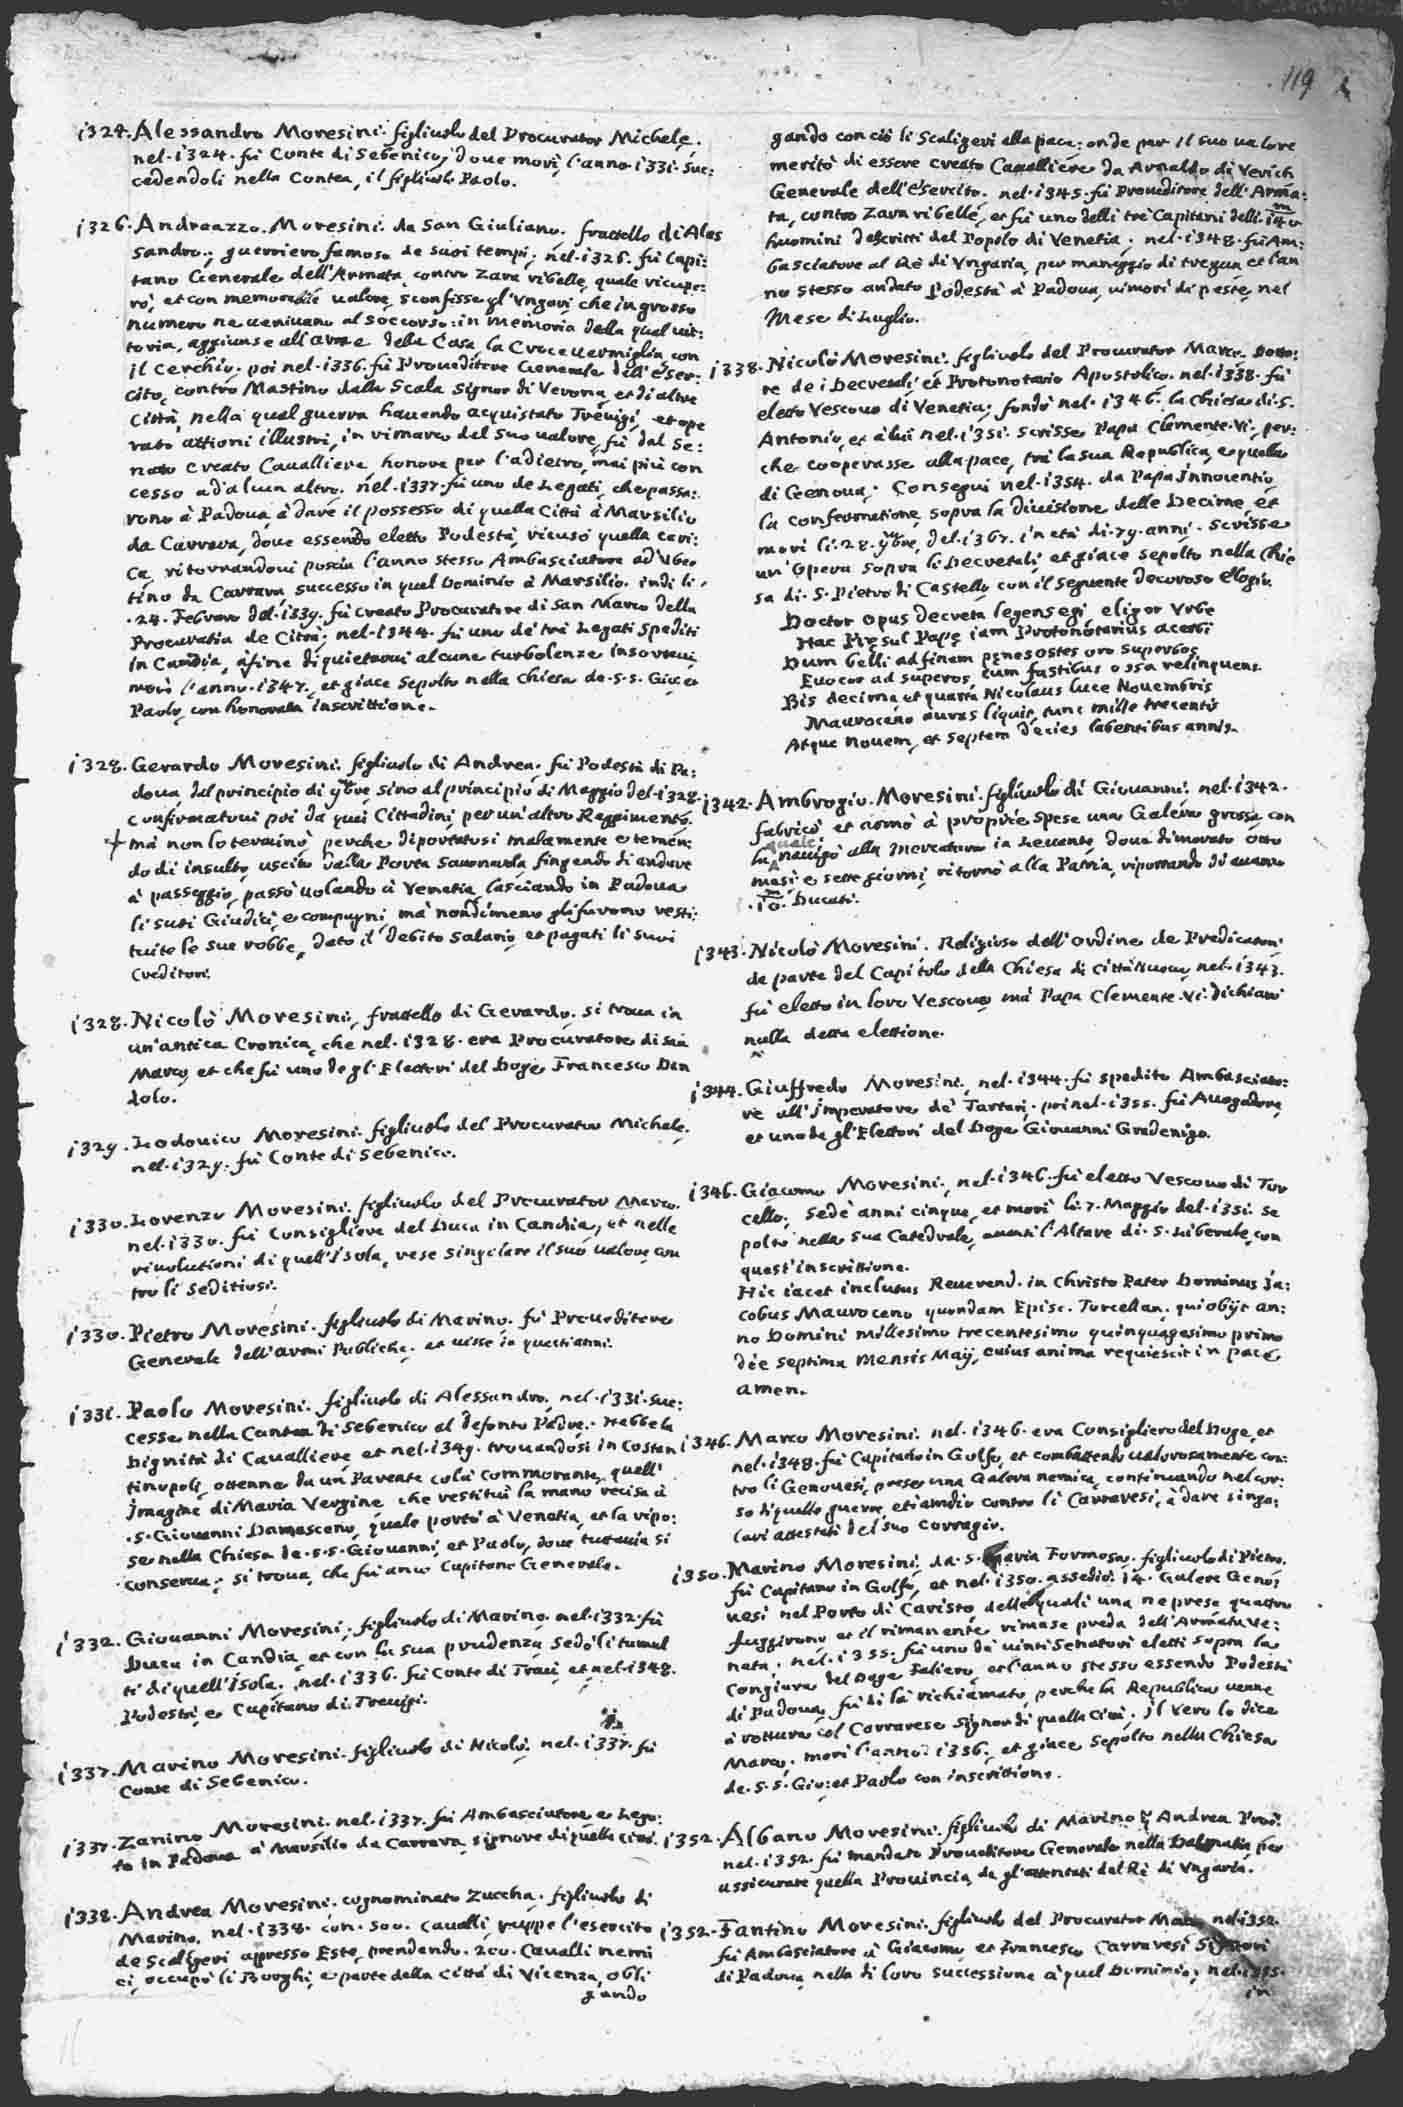 119
1324. Alessandro Moresini. figliuolo del Procurator Michele.
nel. 1324. fù Conte di Sebenico, doue morì l'anno. 1331. suc:
cedendoli nella Contea, il figliuolo Paolo.
1326. Andreazzo. Moresini. da San Giuliano. frattello di Ales
sandro., guerriero famoso de suoi tempi, nel. 1326. fù Capi:
tano Generale dell'Armata contro Zara ribelle, quale ricupe:
rò, et con memorabile ualore, sconfisse gl'Vngari che in grosso
numero ne ueniuano al soccorso: in memoria della qual uit:
toria, aggiunse all'arme della Casa, la Croce uermiglia, con
il cerchio. poi nel. 1336. fù Proueditore Generale dell'eser:
cito, contro Mastino dalla Scala Signor di Verona, et di altre
Città, nella qual guerra hauendo acquistato Treuigi, et ope
rato attioni illustri, in rimarco del suo ualore, fù dal Se:
nato creato Caualliere, honore per l'adietro, mai più con
cesso ad alcun altro. nel. 1337. fù uno de Legati, che passa:
rono à Padoua, à dare il possesso di quella Città à Marsilio
da Carrara, doue essendo eletto Podestà, ricusò quella cari:
ca, ritornandoui poscia l'anno stesso Ambasciatore ad Vber
tino da Carrara, successo in quel Dominio à Marsilio. indi li.
.24. Febraro del. 1339. fù creato Procuratore di San Marco della
Procuratia de Citrà; nel. 1344. fù uno de trè Legati spediti
in Candia, à fine di quietarui alcune turbolenze insorteui,
morì l'anno. 1347., et giace sepolto nella Chiesa de. S.S. Gio: et
Paolo, con honorata inscrittione.
1328. Gerardo Moresini. figliuolo di Andrea. fù Podestà di Pa:
doua dal principio di 9bre sino al principio di Maggio del. 1328.
confirmatoui poi da quei Cittadini per un'altro Reggimento.
+ mà non lo terminò, perche diportatosi malamente e temen:
do di insulto, uscito dalla Porta Sauonarola, fingendo di andare
à passeggio, passò uolando à Venetia, lasciando in Padoua
li suoi Giudici, e compagni, mà nondimeno gli furono resti:
tuite le sue robbe, dato il debito salario, et pagati li suoi
creditori.
1328. Nicolò Moresini, frattello di Gerardo. si troua in
un'antica Cronica, che nel. 1328. era Procuratore di San
Marco, et che fù uno degl'Elettori del Doge Francesco Dan
dolo.
1329. Lodouico Moresini. figliuolo del Procurator Michele.
nel. 1329. fù Conte di Sebenico.
1330. Lorenzo Moresini. figliuolo del Procurator Marco.
nel. 1330. fù Consigliere del Duca in Candia, et nelle
riuolutioni di quell'Isola, rese singolare il suo ualore, con
tro li seditiosi.
1330. Pietro Moresini. figliuolo di Marino. fù Proueditore
Generale dell'armi Publiche. et uisse in questi anni.
1331. Paolo Moresini. figliuolo di Alessandro, nel. 1331. suc:
cesse nella Contea di Sebenico al defonto Padre. Hebbe la
Dignità di Caualliere, et nel. 1349. trouandosi in Costan
tinopoli, ottenne da un Parente colà commorante, quell'
Imagine di Maria Vergine, che restituì la mano recisa à
.S. Giouanni Damasceno, quale portò à Venetia, et la ripo:
se nella Chiesa de. S.S. Giouanni, et Paolo, doue tuttauia si
conserua; si troua, che fù anco Capitano Generale.
1332. Giouanni Moresini, figliuolo di Marino, nel. 1332. fù
Duca in Candia, et con la sua prudenza, sedò li tumul
ti di quell'Isola. nel. 1336. fù Conte di Traù, et nel. 1348.
Podestà, e Capitano di Treuigi.
1337. Marino Moresini. figliuolo di Nicolò. nel. 1337. fù
Conte di Sebenico.
1337. Zanino Moresini. nel. 1337. fù Ambasciatore e Lega:
to in Padoua à Marsilio da Carrara, signore di quella città.
1338. Andrea Moresini. cognominato Zuccha. figliuolo di
Marino, nel. 1338. con. 500. caualli, ruppe l'esercito
de Scaligeri appresso Este, prendendo. 200. caualli nemi
ci, occupò li Borghi, e parte della città di Vicenza, obli
gando
gando con ciò li Scaligeri alla pace: onde per il suo ualore
meritò di essere creato Caualliere da Arnaldo di Verich
Generale dell'esercito. nel. 1345. fù Proueditore dell'Arma:
ta, contro Zara ribelle, et fù uno delli trè Capitani delli. 140
huomini descritti del Popolo di Venetia; nel. 1348. fù Am:
basciatore al Rè di Vngaria, per maneggio di tregua, et l'an
no stesso andato Podestà à Padoua, ui morì di peste, nel
Mese di Luglio.
1338. Nicolò Moresini. figliuolo del Procurator Marco. Dotto:
re de i Decretali et Protonotario Apostolico. nel. 1338. fù
eletto Vescouo di Venetia; fondò nel. 1346. la Chiesa di. S.
Antonio, et à lui nel. 1351. scrisse Papa Clemente. VI. per:
che cooperasse alla pace, trà la sua Republica, e quella
di Genoua; Conseguì nel. 1354. da Papa Innocentio
la confermatione, sopra la diuisione delle Decime, et
morì li. 28. 9bre, del. 1367. in età di. 79. anni. scrisse
un'opera sopra li Decretali, et giace sepolto nella Chie
sa di. S. Pietro di Castello, con il seguente decoroso elogio.
Doctor opus decreta legens egi eligor Vrbe
Hac Pręsul Papę iam Protonotarius acerbi
Dum belli ad finem penes ostes oro superbos
Euocor ad superos, cum fastibus ossa relinquens.
Bis decima, et quarta Nicolaus luce Nouembris
Mauroceno auras liquit, tunc mille trecentis
Atque nouem, et septem decies labentibus annis.
1342. Ambrogio. Moresini. figliuolo di Giouanni. nel. 1342.
fabricò et armò à proprie spese una Galera grossa, con
la quale nauigò alla mercatura in Leuante, doue dimorato otto
mesi, e sette giorni, ritornò alla Patria, riportando di auanzo
.10. Ducati.
1343. Nicolò Moresini. Religioso dell'ordine de Predicatori
da parte del Capitolo della Chiesa di Cittanuoua, nel. 1343.
fù eletto in loro Vescouo, mà Papa Clemente. VI. dichiarò
nulla detta elettione.
1344. Giuffredo Moresini, nel. 1344. fù spedito Ambasciato:
re all'Imperatore de Tartari. poi nel. 1355. fù Auogadore,
et uno de gl'Elettori del Doge Giouanni Gradenigo.
1346. Giacomo Moresini, nel. 1346. fù eletto Vescouo di Tor
cello, sedè anni cinque, et morì li. 7. Maggio del. 1351. se
polto nella sua Catedrale, auanti l'Altare di. S. Liberale, con
quest'inscrittione.
Hic iacet inclutus Reuerend. in Christo Pater Dominus Ja:
cobus Mauroceno quondam Episc. Torcellan. qui obijt an:
no Domini millesimo trecentesimo quinquagesimo primo
die septima mensis Maij, cuius anima requiescit in pace
amen.
1346. Marco Moresini. nel. 1346. era Consigliero del Doge, et
nel. 1348. fù Capitano in Golfo, et combattendo ualorosamente con:
tro li Genouesi, prese una Galera nemica, continuando nel cor:
so di quelle guerre, etiamdio contro li Carraresi, à dare singo:
lari attestati del suo corragio.
1350. Marino Moresini, da. S. Maria Formosa. figliuolo di Pietro.
fù Capitano in Golfo, et nel. 1350. assediò. 14. Galere Geno:
uesi nel Porto di Caristo, delle quali una ne prese quattro
fuggirono et il rimanente rimase preda dell'Armata Ve:
neta. nel. 1355. fù uno de uinti Senatori eletti sopra la
Congiura del Doge Faliero, et l'anno stesso essendo Podestà
di Padoua, fù di là richiamato, perche la Republica uenne
à rottura col Carrarese signor di quella Città. il vero lo dice
Marco. morì l'anno. 1356. et giace sepolto nella Chiesa
de. S.S. Gio: et Paolo con inscrittione.
1352. Albano Moresini. figliuolo di Marino Andrea Pro:
nel. 1352. fù mandato Proueditore Generale nella Dalmatia, per
assicurare quella Prouincia, da gl'attentati del Rè di Vngaria.
1352. Fantino Moresini. figliuolo del Procurator Marco, nel. 1352.
fù Ambasciatore à Giacomo, et Francesco Carraresi Signori
di Padoua, nella di loro successione à quel Dominio; nel. 1355.
in